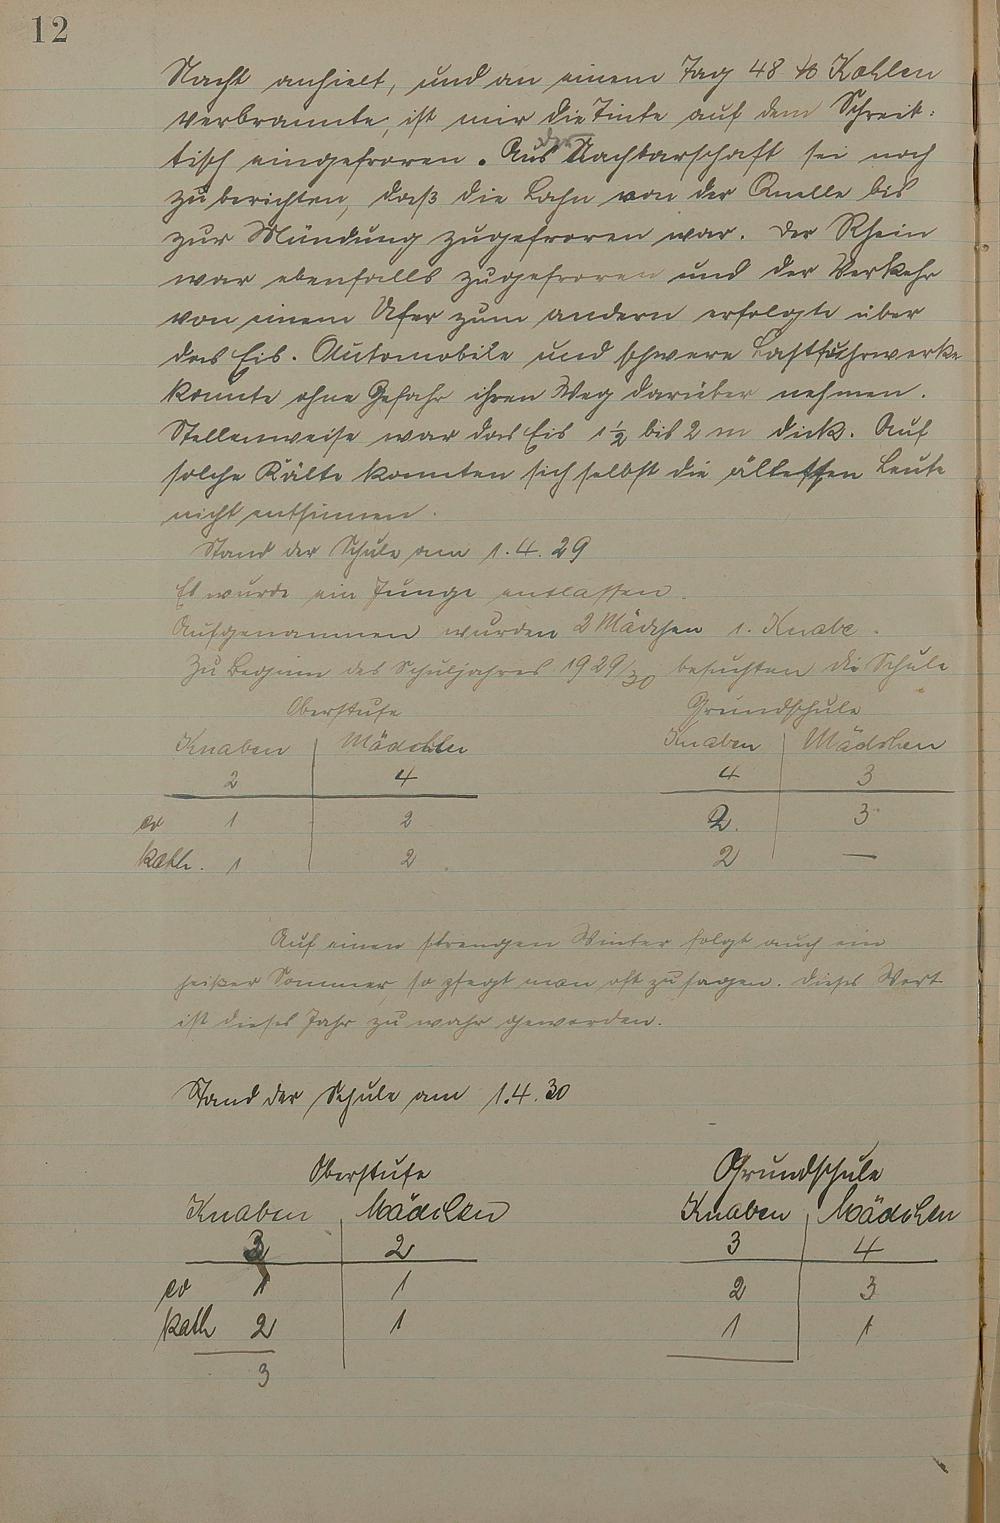 12
Nacht anhielt, und an einem Tag 48 ℔ Kohlen
verbrannte, ist mir die Tinte auf dem Schreib:
tisch eingefroren. Aus der Nachbarschaft sei noch
zu berichten, daß die Lahn von der Quelle bis
zur Mündung zugefroren war. Der Rhein
war ebenfalls zugefroren und der Verkehr
von einem Ufer zum andern erfolgte über
das Eis. Automobile und schwere Lastfuhrwerke
konnte ohne Gefahr ihren Weg darüber nehmen.
Stellenweise war das Eis 1½ bis 2 m dick. Auf
solche Kälte konnten sich selbst die ältesten Leute
nicht entsinnen.
Stand der Schule am 1.4.29
Es wurde ein Junge entlassen.
Aufgenommen wurden 2 Mädchen 1. Knabe.
Zu Beginn des Schuljahres 1929/30 besuchten die Schule
Oberstufe Grundschule
Knaben Mädchen Knaben Mädchen
2 4 4 3
ev 1 2 2. 3
kath. 1 2 2 —
Auf einen strengen Winter folgt auch ein
heißer Sommer, so pflegt man oft zu sagen. Dieses Wort
ist dieses Jahr zu wahr geworden.
Stand der Schule am 1.4.30
Oberstufe Grundschule
Knaben Mädchen Knaben Mädchen
3 2 3 4
ev 1 1 2 3
kath 2 1 1 1
3